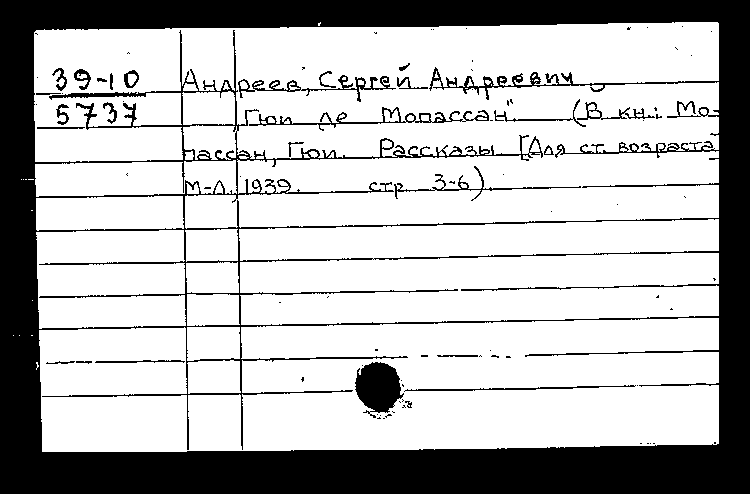 39-10
5737
Андреев, Сергей Андреевич
„Гюи де Мопассан". (В кн.: Мо-
пассан, Гюи. Рассказы. [Для ст. возраста]
М-Л., 1939. стр 3-6).